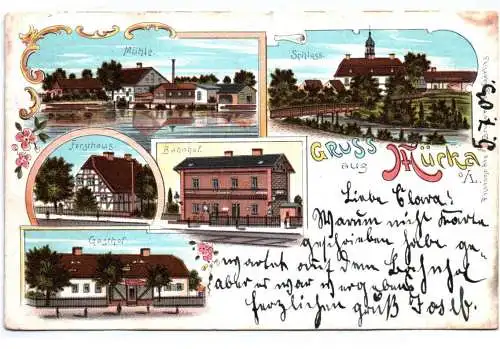 Mühle.
Schloss.
Forsthaus.
Bahnhof.
GRUSS
aus
Mücka
O/L.
Gasthof
Liebe Clara!
Warum nicht Karte
geschrieben habe ge-
wartet auf dem Bahnhof
aber er war vergebens
herzlichen gruß